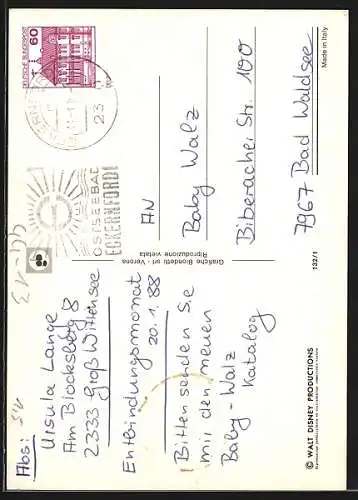 Abs:
Ursula Lange
Am Blocksberg 8
2333 Groß Wittensee
Entbindungsmonat
20.1.88
Bitten senden Sie
mir den neuen
Baby-Walz
Katalog
© WALT DISNEY PRODUCTIONS
132/1
Grafiche Biondetti · srl - Verona
Riproduzione vietata
DEUTSCHE BUNDESPOST
60
23
OSTSEEBAD
ECKERNFÖRDE
AN
Baby Walz
Biberacher Str. 100
7967 Bad Waldsee
Made in Italy